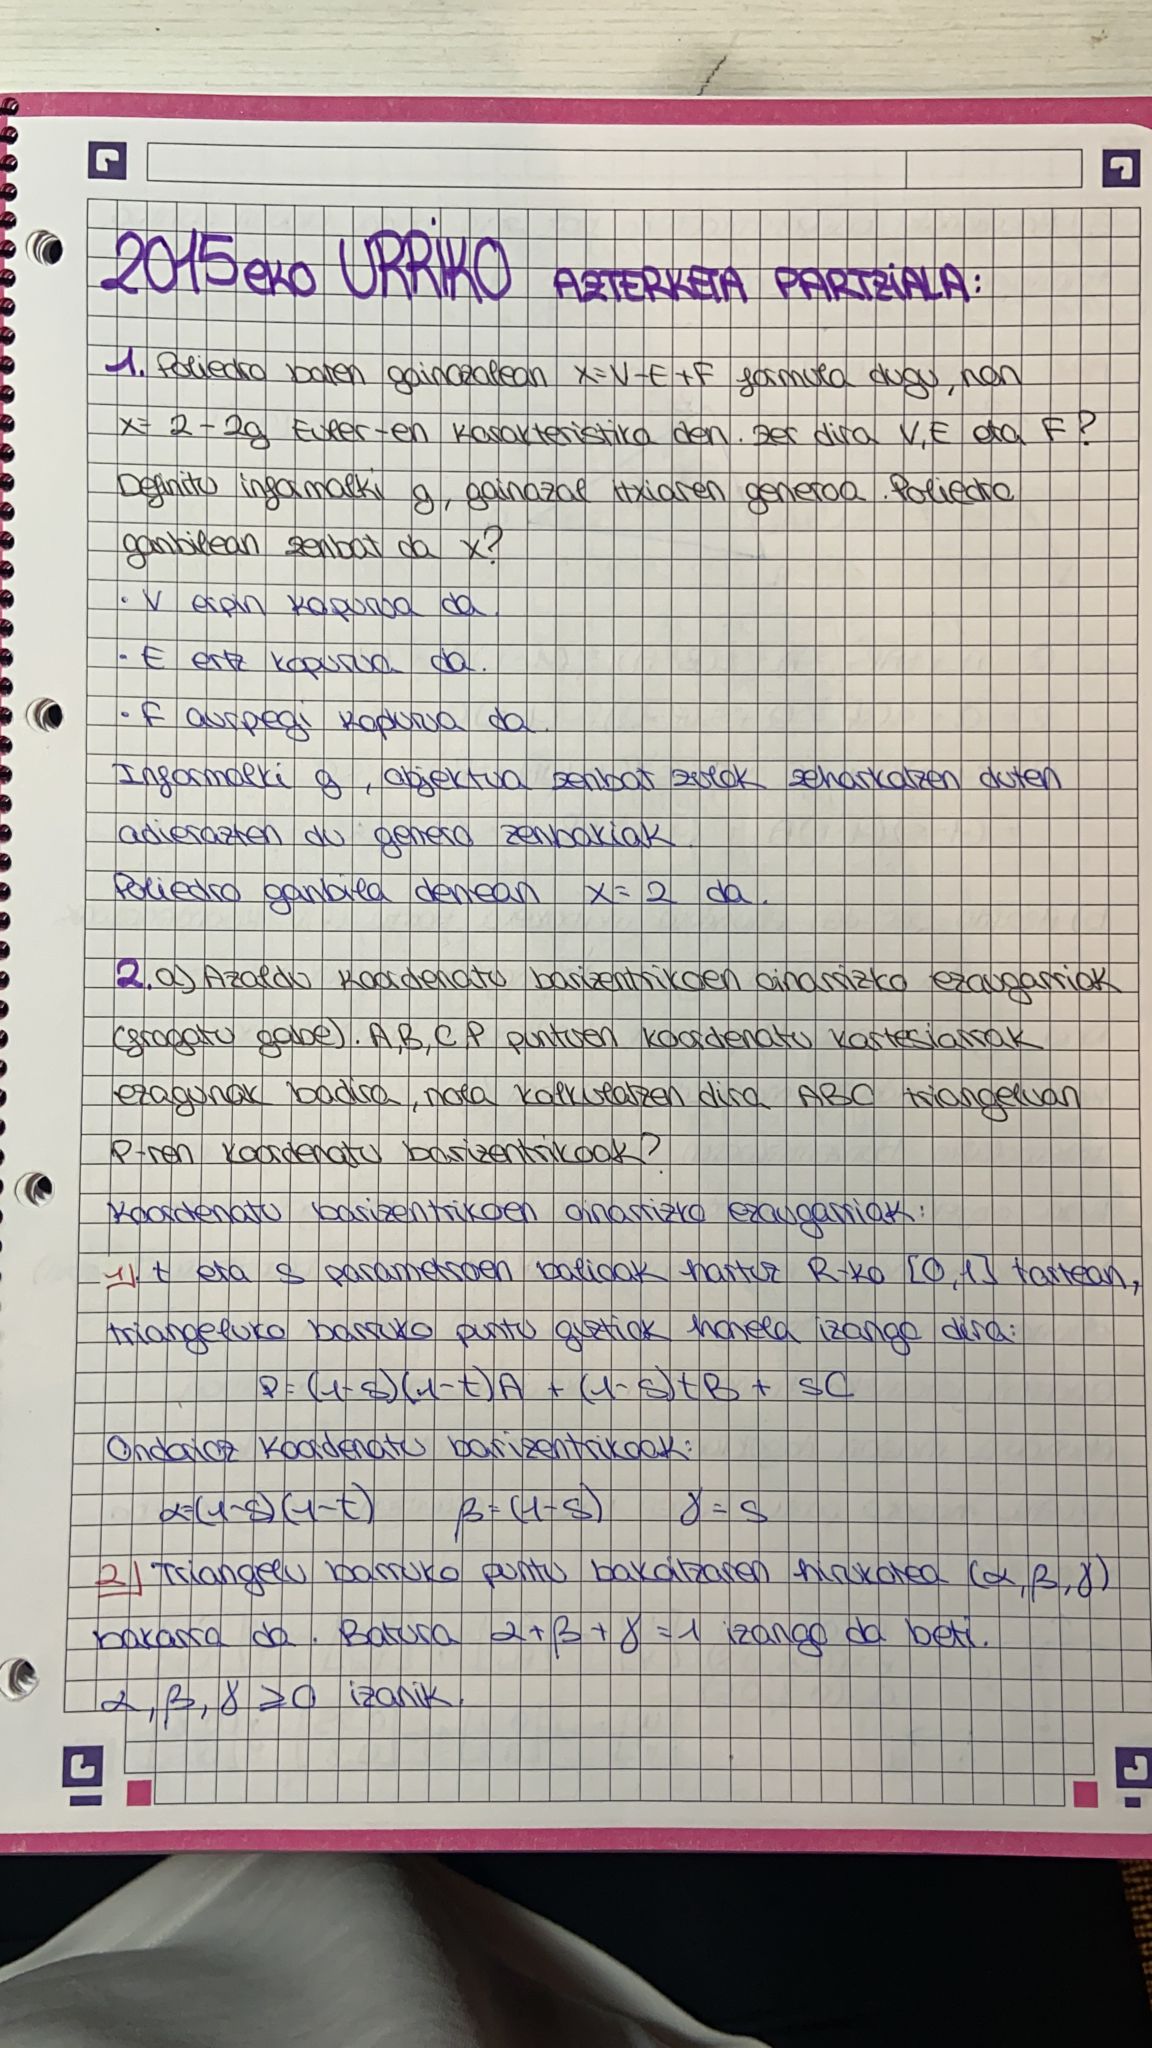 2015eko URRIKO AZTERKETA PARTZIALA:
1. Poliedro baten gainazalean x=V-E+F formula dugu, non
x= 2-2g Euler-en karakteristika den. Zer dira V, E eta F?
Definitu informalki g, gainazal itxiaren generoa. Poliedro
ganbilean zenbat da x?
· V erpin kopurua da.
· E ertz kopurua da.
· F aurpegi kopurua da.
Informalki g, objektua zenbat zulok zeharkatzen duten
adierazten du genero zenbakiak.
Poliedro ganbila denean x=2 da.
2. a) Azaldu koordenatu barizentrikoen oinarrizko ezaugarriak
(frogatu gabe). A,B,C,P puntuen koordenatu kartesiarrak
ezagunak badira, nola kalkulatzen dira ABC triangeluan
P-ren koordenatu barizentrikoak?
Koordenatu barizentrikoen oinarrizko ezaugarriak:
1) t eta s parametroen balioak hartuz R-ko [0,1] tartean,
triangeluko barruko puntu guztiak honela izango dira:
P=(1-s)(1-t)A + (1-s)tB + sC
Ondorioz koordenatu barizentrikoak:
α=(1-s)(1-t) β=(1-s) γ=s
2) Triangelu barruko puntu bakoitzaren hirukotea (α, β, γ)
bakarra da. Batura α+β+γ=1 izango da beti.
α, β, γ ≥0 izanik.